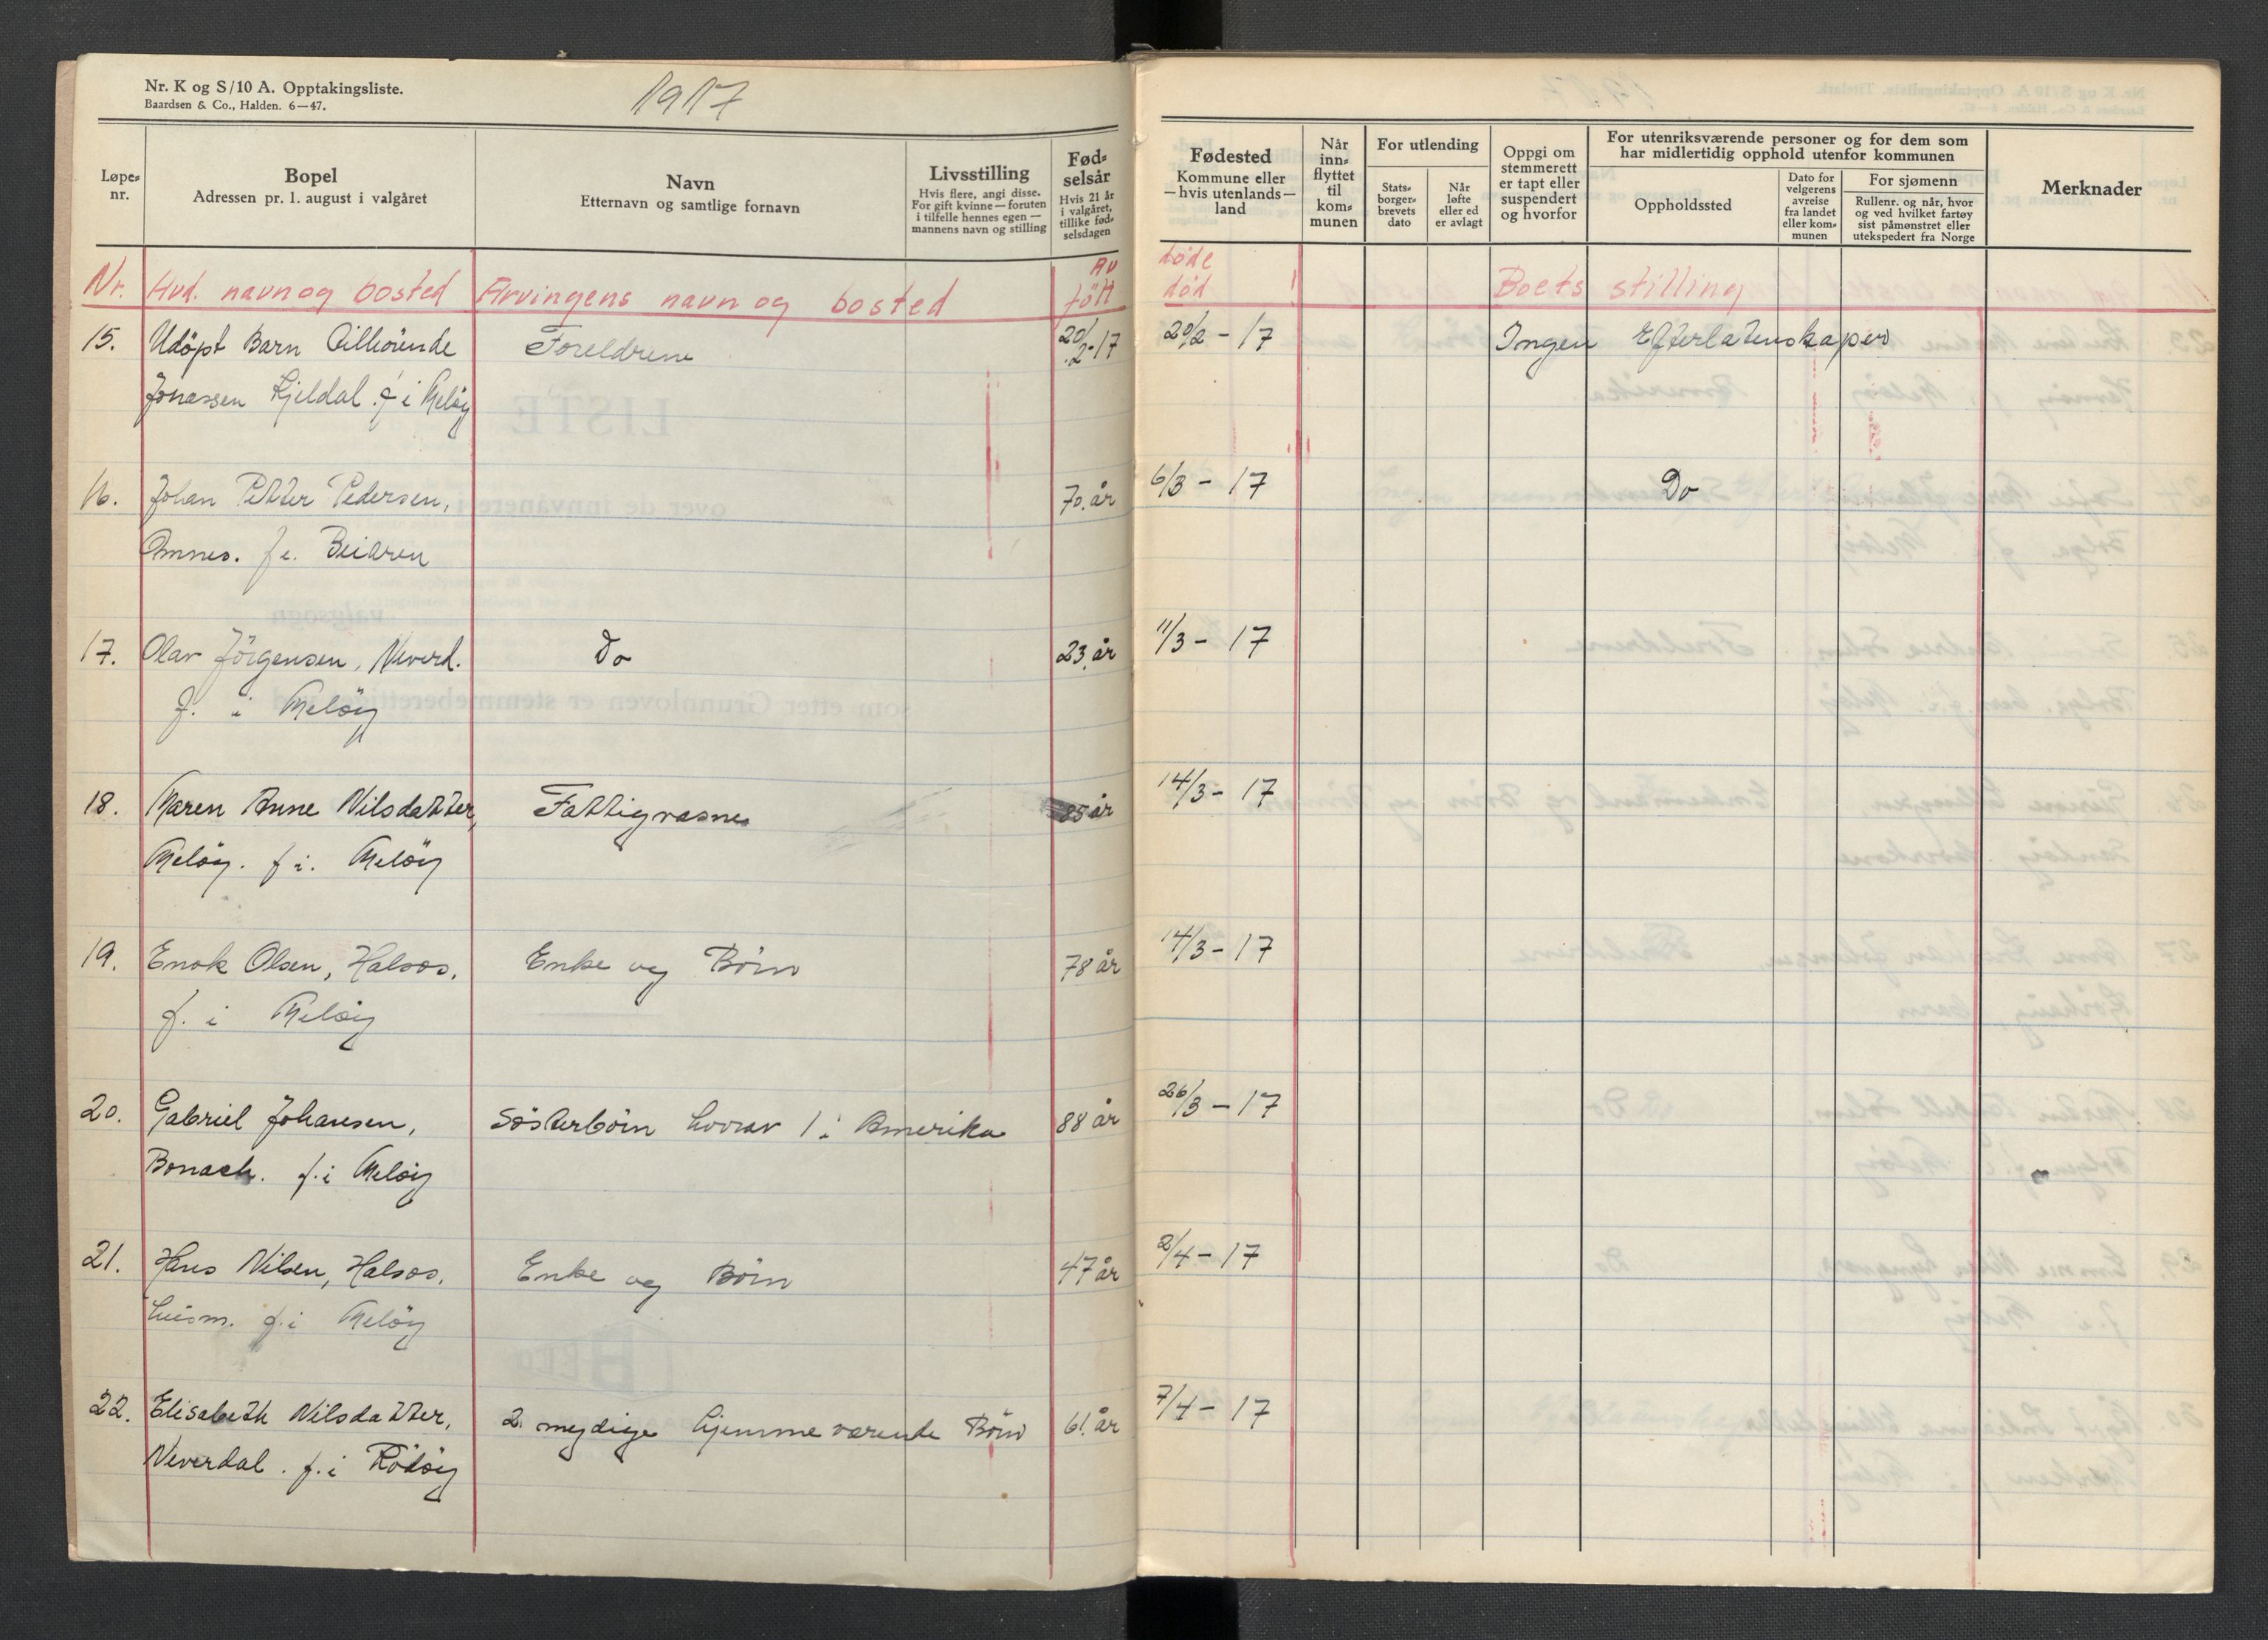 Nr. K og S/10 A. Opptakingsliste.
Baardsen & Co., Halden. 6—47.
1917
Løpe-
nr.
Bopel
Adressen pr. 1. august i valgåret
Navn
Etternavn og samtlige fornavn
Livsstilling
Hvis flere, angi disse.
For gift kvinne — foruten
i tilfelle hennes egen —
mannens navn og stilling
Fød-
selsår
Hvis 21 år
i valgåret,
tillike fød-
selsdagen
Fødested
Kommune eller
— hvis utenlands —
land
Når
inn-
flyttet
til
kom-
munen
For utlending
Stats-
borger-
brevets
dato
Når
løfte
eller ed
er avlagt
Oppgi om
stemmerett
er tapt eller
suspendert
og hvorfor
For utenriksværende personer og for dem som
har midlertidig opphold utenfor kommunen
Oppholdssted
Dato for
velgerens
avreise
fra landet
eller kom-
munen
For sjømenn
Rullenr. og når, hvor
og ved hvilket fartøy
sist påmønstret eller
utekspedert fra Norge
Merknader
Nr. Avd. navn og bosted Arvingens navn og bosted Av født døde død Boets stilling
15. Udöpt Barn Foreldrene 20/2-17 20/2 - 17 Ingen Efterlatenskaper
Jonassen Kjeldal. f i Melöy
16. Johan Petter Pedersen, 70. år 6/3 - 17 Do
Amnes. f i. Beiaren
17. Olav Jörgensen, Neverd. Do 23. år 11/3 - 17
f. i Melöy
18. Maren Anne Nilsdatter, Fattigvasnes 85 år 14/3 - 17
Melöy. f i. Melöy
19. Enok Olsen, Halsos. Enke og Börn 78 år 14/3 - 17
f. i Melöy
20. Gabriel Johansen, Sösterbörn hvorav 1 i Amerika 88 år 26/3 - 17
f. i Melöy
21. Hans Nilsen, Halsos. Enke og Börn 47 år 2/4 - 17
husm. f. i Melöy
22. Elisabeth Nilsdatter, 2 mydige hjemmeværende Börn 61. år 7/4 - 17
Neverdal. f. i Rödöy